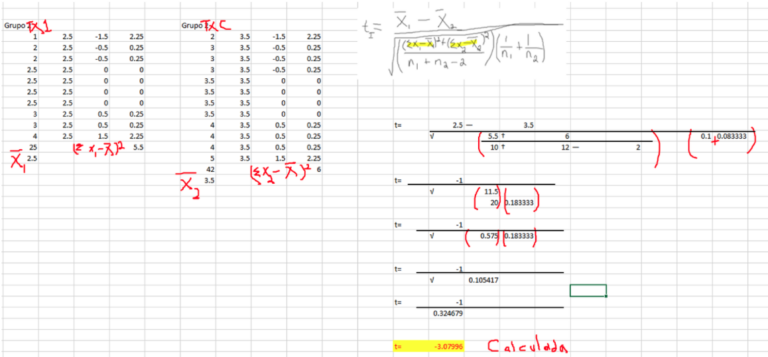 Grupo Tx 1
1 2.5 -1.5 2.25
2 2.5 -0.5 0.25
2 2.5 -0.5 0.25
2.5 2.5 0 0
2.5 2.5 0 0
2.5 2.5 0 0
2.5 2.5 0 0
3 2.5 0.5 0.25
3 2.5 0.5 0.25
4 2.5 1.5 2.25
25 (Σ x₁-x̄)² 5.5
X̄₁ 2.5
Grupo Tx C
2 3.5 -1.5 2.25
3 3.5 -0.5 0.25
3 3.5 -0.5 0.25
3 3.5 -0.5 0.25
3.5 3.5 0 0
3.5 3.5 0 0
3.5 3.5 0 0
3.5 3.5 0 0
4 3.5 0.5 0.25
4 3.5 0.5 0.25
4 3.5 0.5 0.25
5 3.5 1.5 2.25
42 (Σx₂-X̄₁)² 6
X̄₂ 3.5
t = X̄₁ - X̄₂
√ ((Σx-x̄)²+(Σx₂-x̄₂)²) (1/n₁ + 1/n₂)
n₁ + n₂ - 2
t= 2.5 — 3.5
√ ( 5.5 + 6 ) ( 0.1 + 0.083333 )
10 + 12 — 2
t= -1
√ ( 11.5 ) ( 0.183333 )
20
t= -1
√ ( 0.575 ) ( 0.183333 )
t= -1
√ 0.105417
t= -1
0.324679
t= -3.07996 Calculada